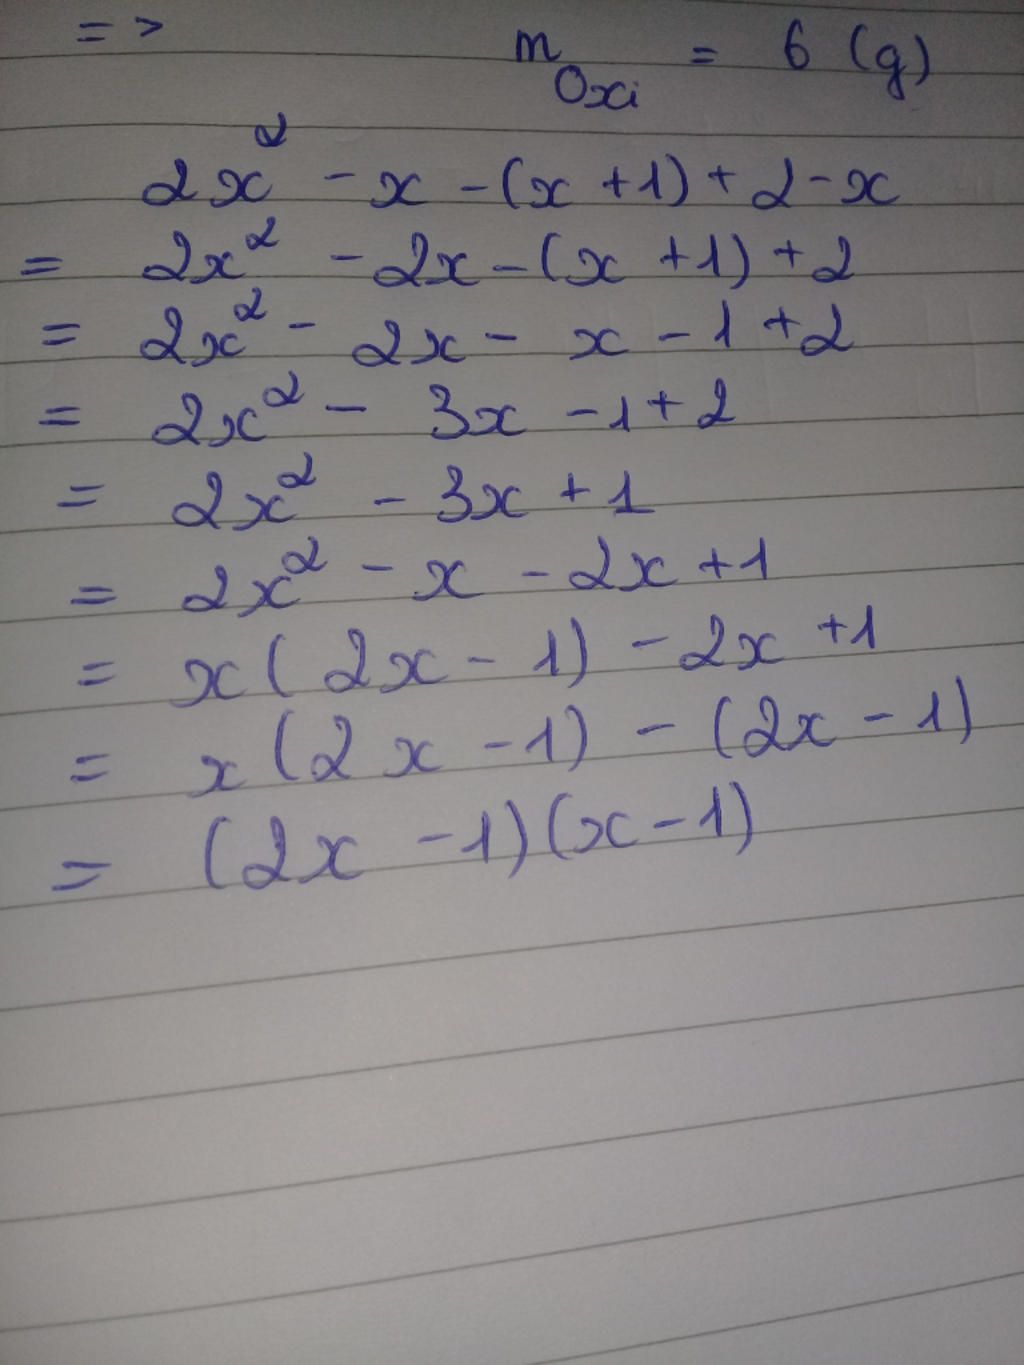 => m Oxi = 6 (g)
2x² - x - (x + 1) + 2 - x
= 2x² - 2x - (x + 1) + 2
= 2x² - 2x - x - 1 + 2
= 2x² - 3x - 1 + 2
= 2x² - 3x + 1
= 2x² - x - 2x + 1
= x(2x - 1) - 2x + 1
= x(2x - 1) - (2x - 1)
= (2x - 1)(x - 1)